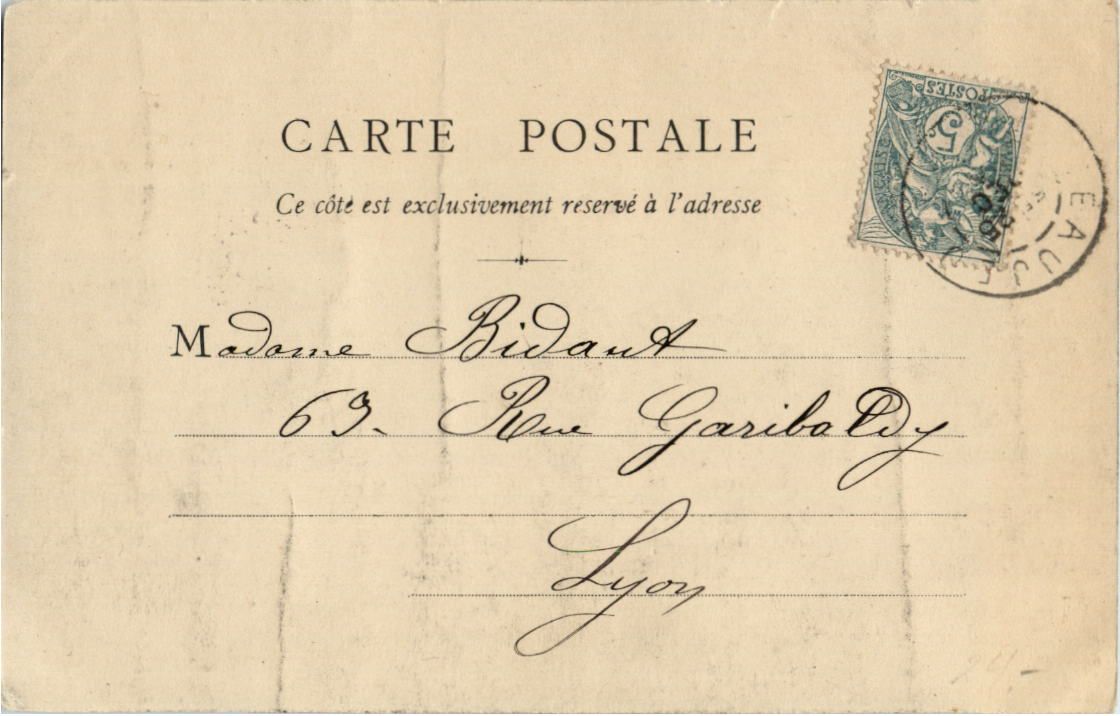 CARTE POSTALE
Ce côté est exclusivement reservé à l'adresse
POSTES
5
EAUJE
Madame Bidaut
63. Rue Garibaldy
Lyon
24-